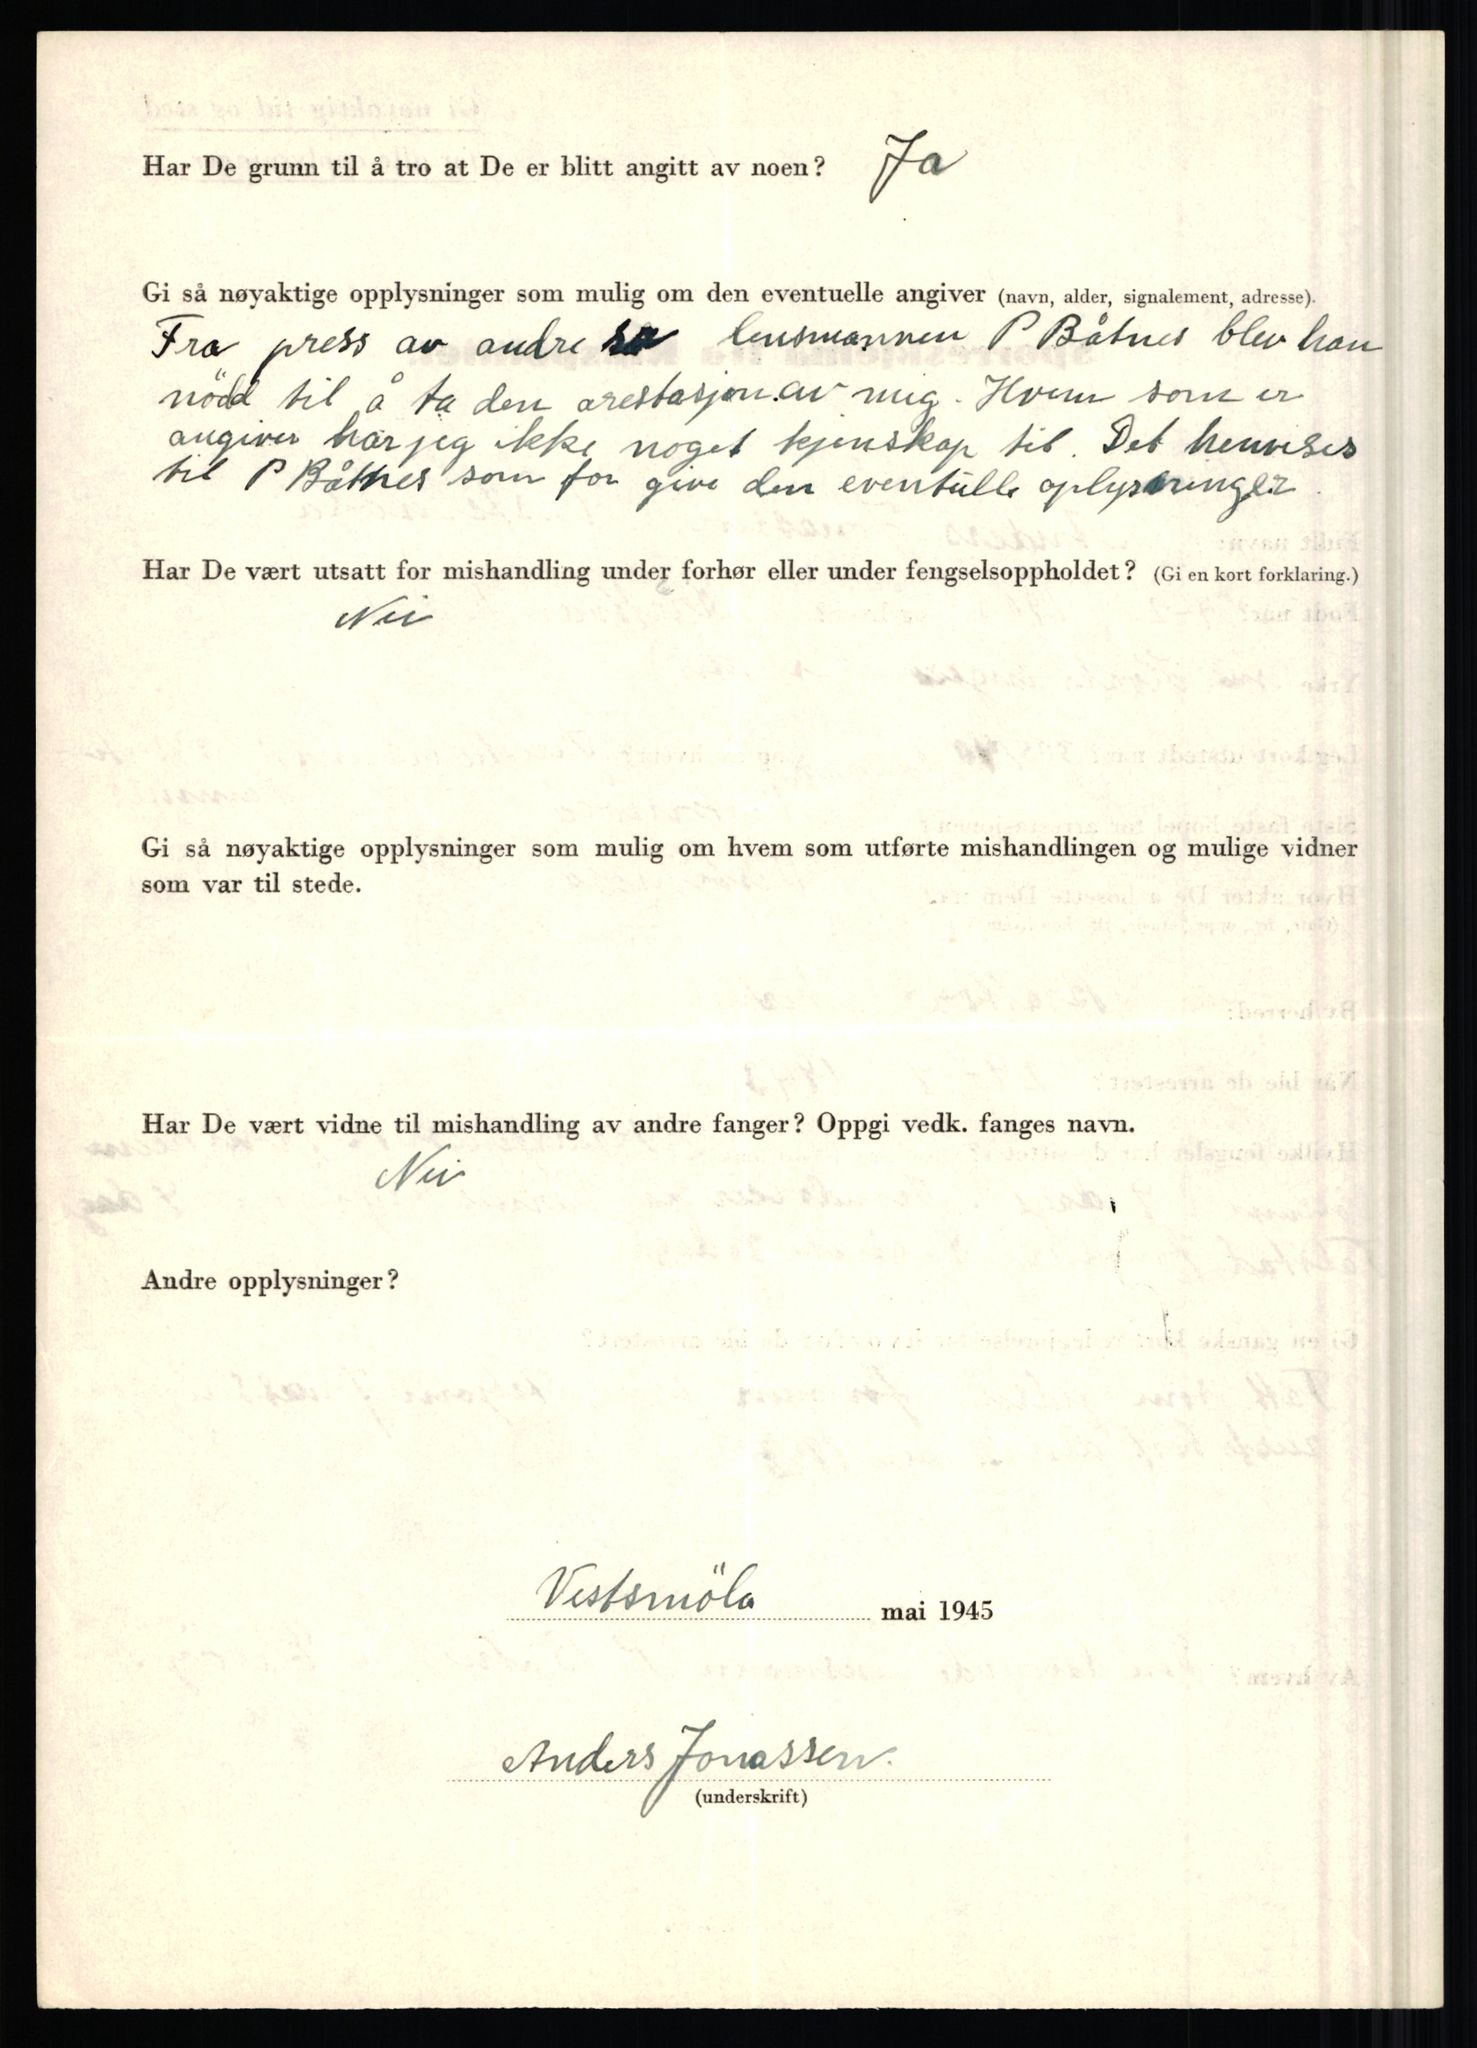 Har De grunn til å tro at De er blitt angitt av noen? Ja
Gi så nøyaktige opplysninger som mulig om den eventuelle angiver (navn, alder, signalement, adresse).
Fra press av andre lensmannen P Båtnes blev han
nödd til å ta den arestasjon av mig. Hvem som er
angiver har jeg ikke noget kjenskap til. Det henvises
til P Båtnes som for give den eventuille oplysninger.
Har De vært utsatt for mishandling under forhør eller under fengselsoppholdet? (Gi en kort forklaring.)
Nei
Gi så nøyaktige opplysninger som mulig om hvem som utførte mishandlingen og mulige vidner
som var til stede.
Har De vært vidne til mishandling av andre fanger? Oppgi vedk. fanges navn.
Nei
Andre opplysninger?
Vestsmöla mai 1945
Anders Jonassen.
(underskrift)